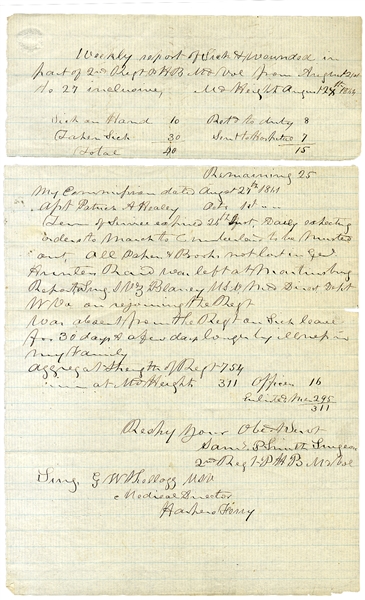 Weekly report of Sick & Wounded in
part of 2nd Regt P.H.B. Md Vol from August 21st
to 27 inclusive, Md Heights August 27th 1864
Sick on Hand 10 Retd to duty 8
Taken Sick 30 Sent to Hospital 7
Total 40 15
Remaining 25
My Commission dated August 27th 1861
Asst Patrick A Healey Oct 1st
Term of Service expired 25th Inst, Daily expecting
orders to March to Cumberland to be Mustered
out, All Papers & Books not lost in Genl
Hunters Raid was left at Martinsburg
Report Surg Blaney USV Med Direct Dept
W. Va on rejoining the Regt
was absent from the Regt on Sick leave
for 30 days & a few days longer by illness in
my family
aggregat Strength of Regt 754
" " at Md Heights 311 Officers 16
Enlisted Men 295
311
Respy Your Obt Servt
Saml. P. Smith Surgeon
2nd Regt P H B Md Vol
Surg G W Kellogg USV
Medical Director
Harpers Ferry